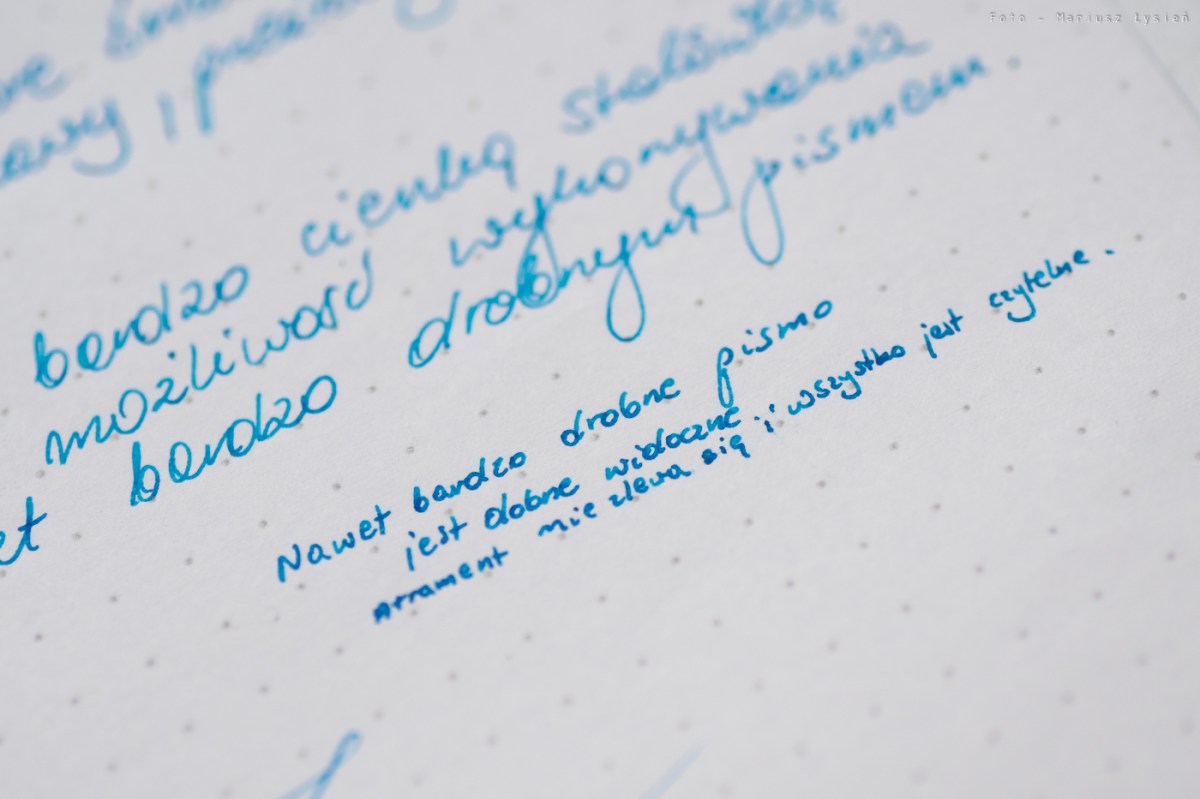 Foto - Mariusz Łysień
i
bardzo cienką stalówką
możliwość wykonywania
bardzo drobnym pismem.
Nawet bardzo drobne pismo
jest dobrze widoczne
Atrament nie zlewa się i wszystko jest czytelne.